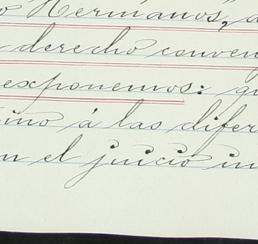 o Hermanos,
derecho conven
exponemos: qu
ino á las difer
n el juicio in